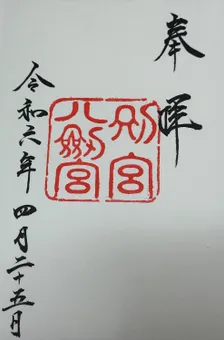 奉拝
別宮
八剱宮
令和六年 四月二十五日